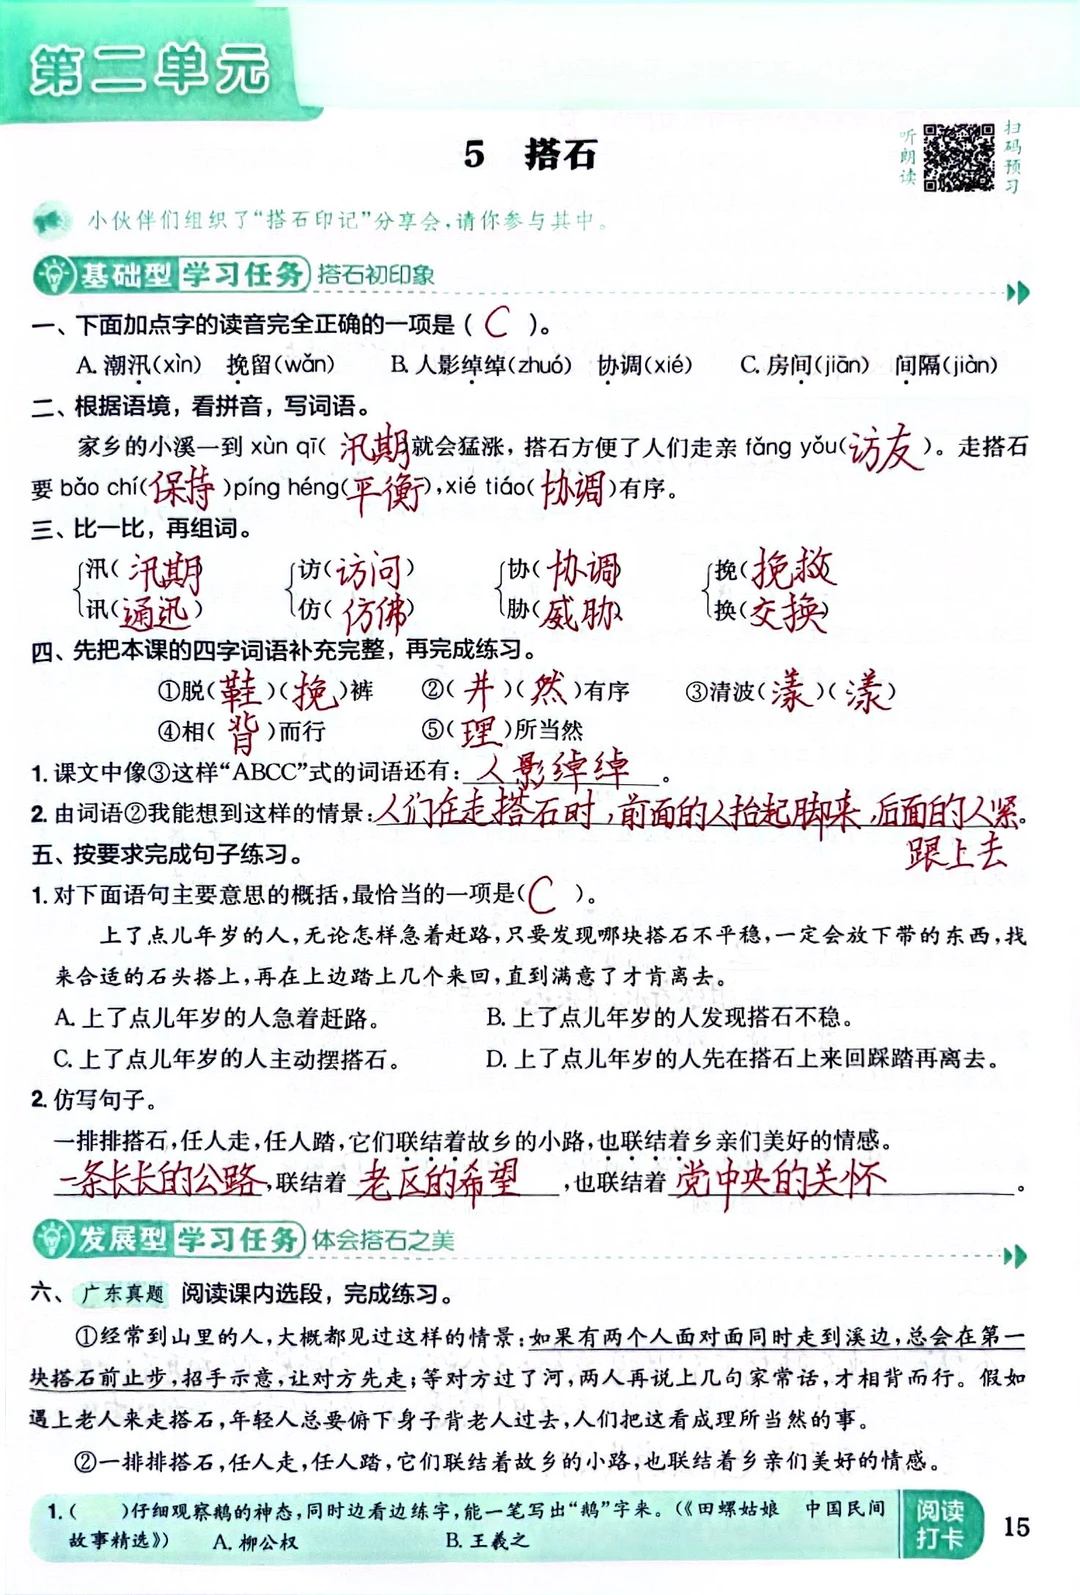 第二单元
5 搭石
听朗读
扫码预习
小伙伴们组织了“搭石印记”分享会,请你参与其中。
基础型 学习任务 搭石初印象
一、下面加点字的读音完全正确的一项是( C )。
A. 潮汛(xìn) 挽留(wǎn) B. 人影绰绰(zhuó) 协调(xié) C. 房间(jiān) 间隔(jiàn)
二、根据语境，看拼音，写词语。
家乡的小溪一到 xùn qī( 汛期 就会猛涨，搭石方便了人们走亲 fǎng yǒu( 访友 )。走搭石
要 bǎo chí( 保持 )píng héng( 平衡 ),xié tiáo( 协调 )有序。
三、比一比，再组词。
汛( 汛期 ) 访( 访问 ) 协( 协调 ) 挽( 挽救
讯( 通迅 ) 仿( 仿佛 ) 胁( 威胁 ) 换( 交换 )
四、先把本课的四字词语补充完整，再完成练习。
①脱( 鞋 )( 挽 )裤 ②( 井 )( 然 )有序 ③清波( 漾 )( 漾 )
④相( 背 )而行 ⑤( 理 )所当然
1. 课文中像③这样“ABCC”式的词语还有: 人影绰绰 。
2. 由词语②我能想到这样的情景: 人们在走搭石时,前面的人抬起脚来,后面的人紧 。
跟上去
五、按要求完成句子练习。
1. 对下面语句主要意思的概括,最恰当的一项是( C )。
上了点儿年岁的人,无论怎样急着赶路,只要发现哪块搭石不平稳,一定会放下带的东西,找
来合适的石头搭上,再在上边踏上几个来回,直到满意了才肯离去。
A. 上了点儿年岁的人急着赶路。 B. 上了点儿年岁的人发现搭石不稳。
C. 上了点儿年岁的人主动摆搭石。 D. 上了点儿年岁的人先在搭石上来回踩踏再离去。
2. 仿写句子。
一排排搭石,任人走,任人踏,它们联结着故乡的小路,也联结着乡亲们美好的情感。
一条长长的公路 ,联结着 老区的希望 ,也联结着 党中央的关怀 。
发展型 学习任务 体会搭石之美
六、 广东真题 阅读课内选段，完成练习。
①经常到山里的人,大概都见过这样的情景:如果有两个人面对面同时走到溪边,总会在第一
块搭石前止步,招手示意,让对方先走;等对方过了河,两人再说上几句家常话,才相背而行。假如
遇上老人来走搭石,年轻人总要俯下身子背老人过去,人们把这看成理所当然的事。
②一排排搭石,任人走,任人踏,它们联结着故乡的小路,也联结着乡亲们美好的情感。
1. (    )仔细观察鹅的神态,同时边看边练字,能一笔写出“鹅”字来。(《田螺姑娘 中国民间
故事精选》) A. 柳公权 B. 王羲之
阅读打卡
15